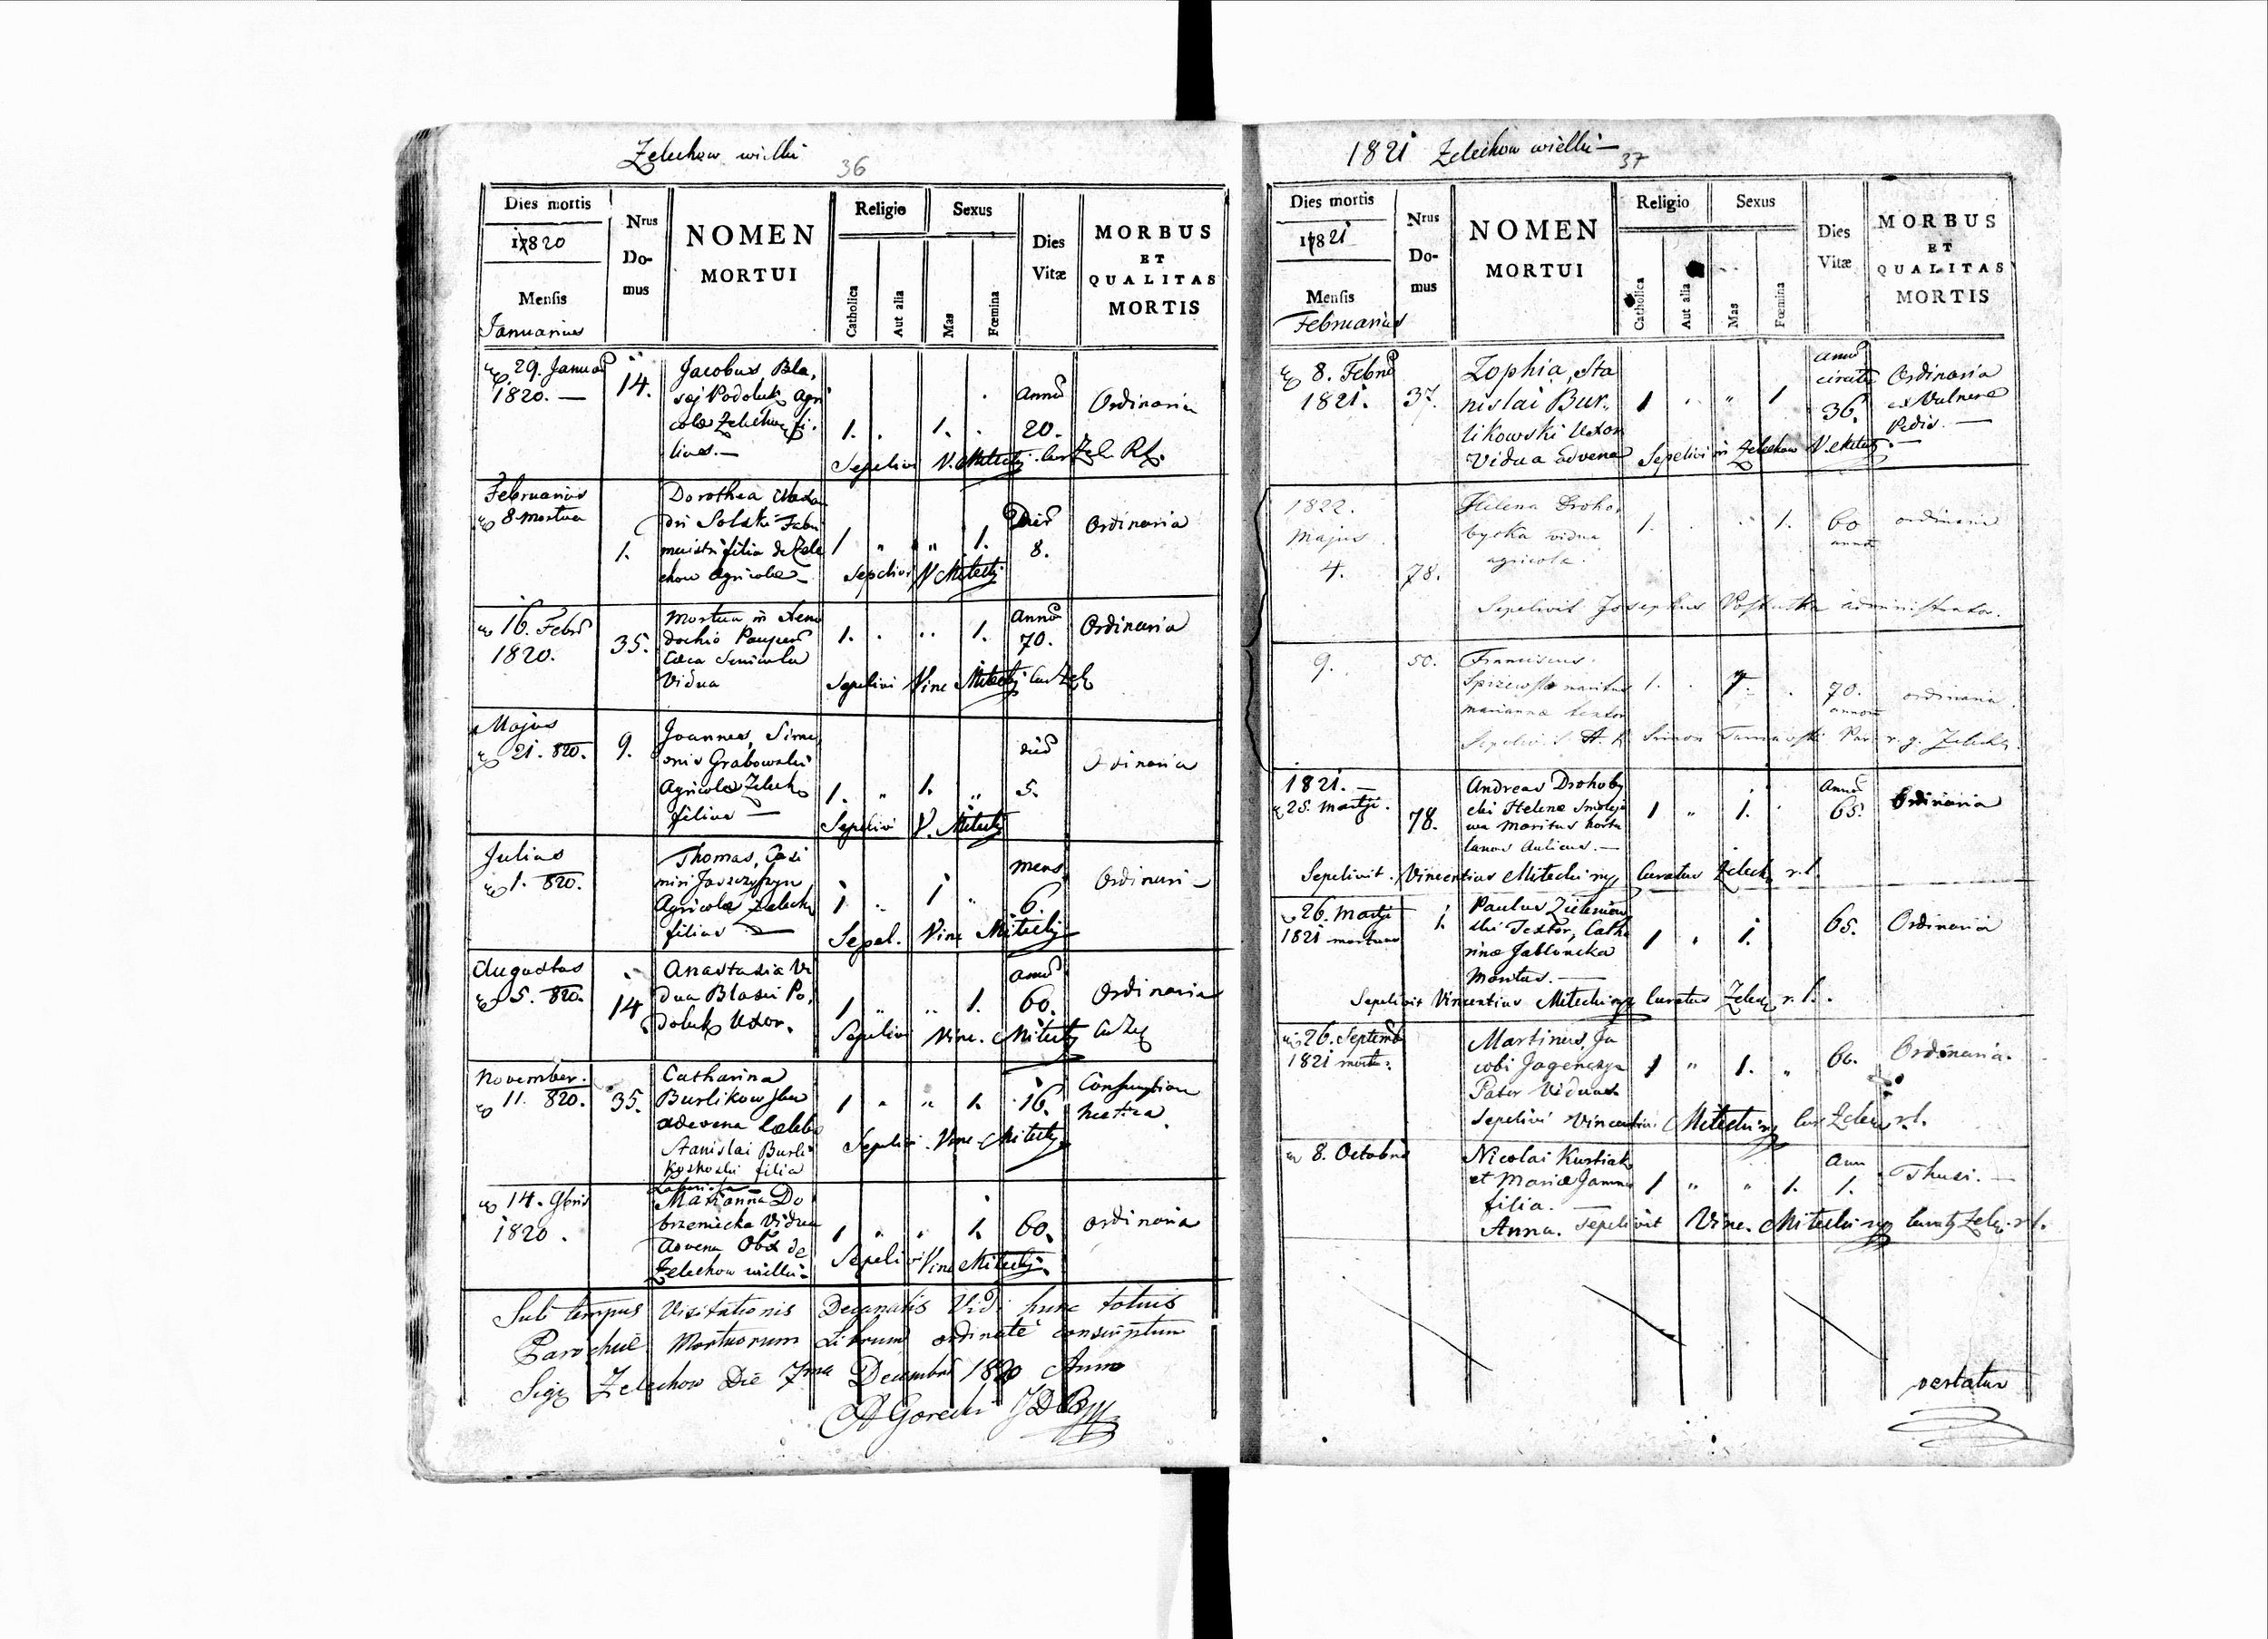 Zelechow wielki
36
Dies mortis
1820
Mensis
Januarius
Nrus
Do-
mus
NOMEN
MORTUI
Religio
Catholica
Aut alia
Sexus
Mas
Fœmina
Dies
Vitæ
MORBUS
ET
QUALITAS
MORTIS
29. Januar
1820. —
14.
Jacobus, Bla,
saj Podoluk Agri
colæ Zelechow fi,
lius. —
1. . 1. .
Anno
20.
Ordinaria
Sepelivi V. Mitechj Cur Zel. RL.
Februarius
8 mortua
1.
Dorothea
dri Solski
filia de Zele
chow Agricolæ —
1 " " 1.
Dies
8.
Ordinaria
Sepelivi V Mitechj
16. Febr
1820.
35.
Mortua in Xeno
dochio Pauper
Cæca
Vidua
1. . .. 1.
Anno
70.
Ordinaria
Sepelivi Vinc Mitechj Cur Zel
Majus
21. 820.
9.
Joannes, Sime
onis Grabowski
Agricolæ Zelech
filius —
1. " 1. "
dies
5.
Ordinaria
Sepelivi V. Mitechj
Julius
1. 820.
Thomas, Casi
miri Jaszczyszyn
Agricolæ Zelech
filius —
1 .. 1 "
mens
6.
Ordinari
Sepel. Vinc Mitechj
Augustus
5. 820.
14
Anastasia Vi
dua Blasii Po,
doluk Uxor.
1 " .. 1.
anno
60.
Ordinaria
Sepelivi Vinc. Mitechj Cu Zel
November.
11. 820.
35.
Catharina
Burlikowska
advena Cælebs
Stanislai Burli
filia
1 " " 1.
16.
Consumption
hectica
Sepelivi. Vinc. Mitechj
14. 9bris
1820.
Marianna Do
brzeniecka Vidua
Advena Obt de
Zelechow wielki —
1 " " 1.
60.
Ordinaria
Sepelivi Vinc Mitechj.
Sub tempus Visitationis Decanalis Vidi hunc totius
Parochiæ Mortuorum Librum ordinate conscriptum
Sig Zelechow Die 7ma Decembris 1820 Anno
A Gorecki
1821 Zelechow wielki —
37
Dies mortis
1821
Mensis
Februarius
Nrus
Do-
mus
NOMEN
MORTUI
Religio
Catholica
Aut alia
Sexus
Mas
Fœmina
Dies
Vitæ
MORBUS
ET
QUALITAS
MORTIS
8. Febru
1821.
37.
Zophia, Sta
nislai Bur,,
likowski Uxor
Vidua advena
1 . " 1
anno
circiter
36.
Ordinaria
ex Vulnere
Pedis. —
Sepelivi in Zelechow V. Mitechj. —
1822.
Majus
4.
78.
Helena Droho,
bycka vidua
agricola.
1. . .. 1.
60
annor
ordinaria
Sepelivit Josephus administrator.
9.
50.
Franciscus
Spizewski maritus
mariannæ textor
1. . 1. .
70.
annor
ordinaria.
Simon
1821. —
25. Martji.
78.
Andreas Drohoby
cki Helenæ
maritus hortu
lanus Aulicus. —
1 " 1. .
Anno
65.
Ordinaria
Sepelivit. Vincentius Mitechiny Curatus Zelech r.l.
26. Martji
1821 mortuus
1.
Paulus Zieleniew
ski Textor, Catha
rinæ Jablonska
Maritus. —
1 . 1.
65.
Ordinaria
Sepelivit Vincentius Mitechiny Curatus Zelech r.l..
26. Septemb
1821 mort.
Martinus, Ja
cobi
Pater Viduus
1 " 1. "
60.
Ordinaria.
Sepelivi Vincentius Mitechiny Cur Zelech r.l.
8. Octobris
Nicolai Kustiak
et Mariæ
filia. —
Anna.
1 " " 1.
Ann
1.
Thusi. —
Sepelivit Vinc. Mitechiny Curat Zele. r.l.
vertatur